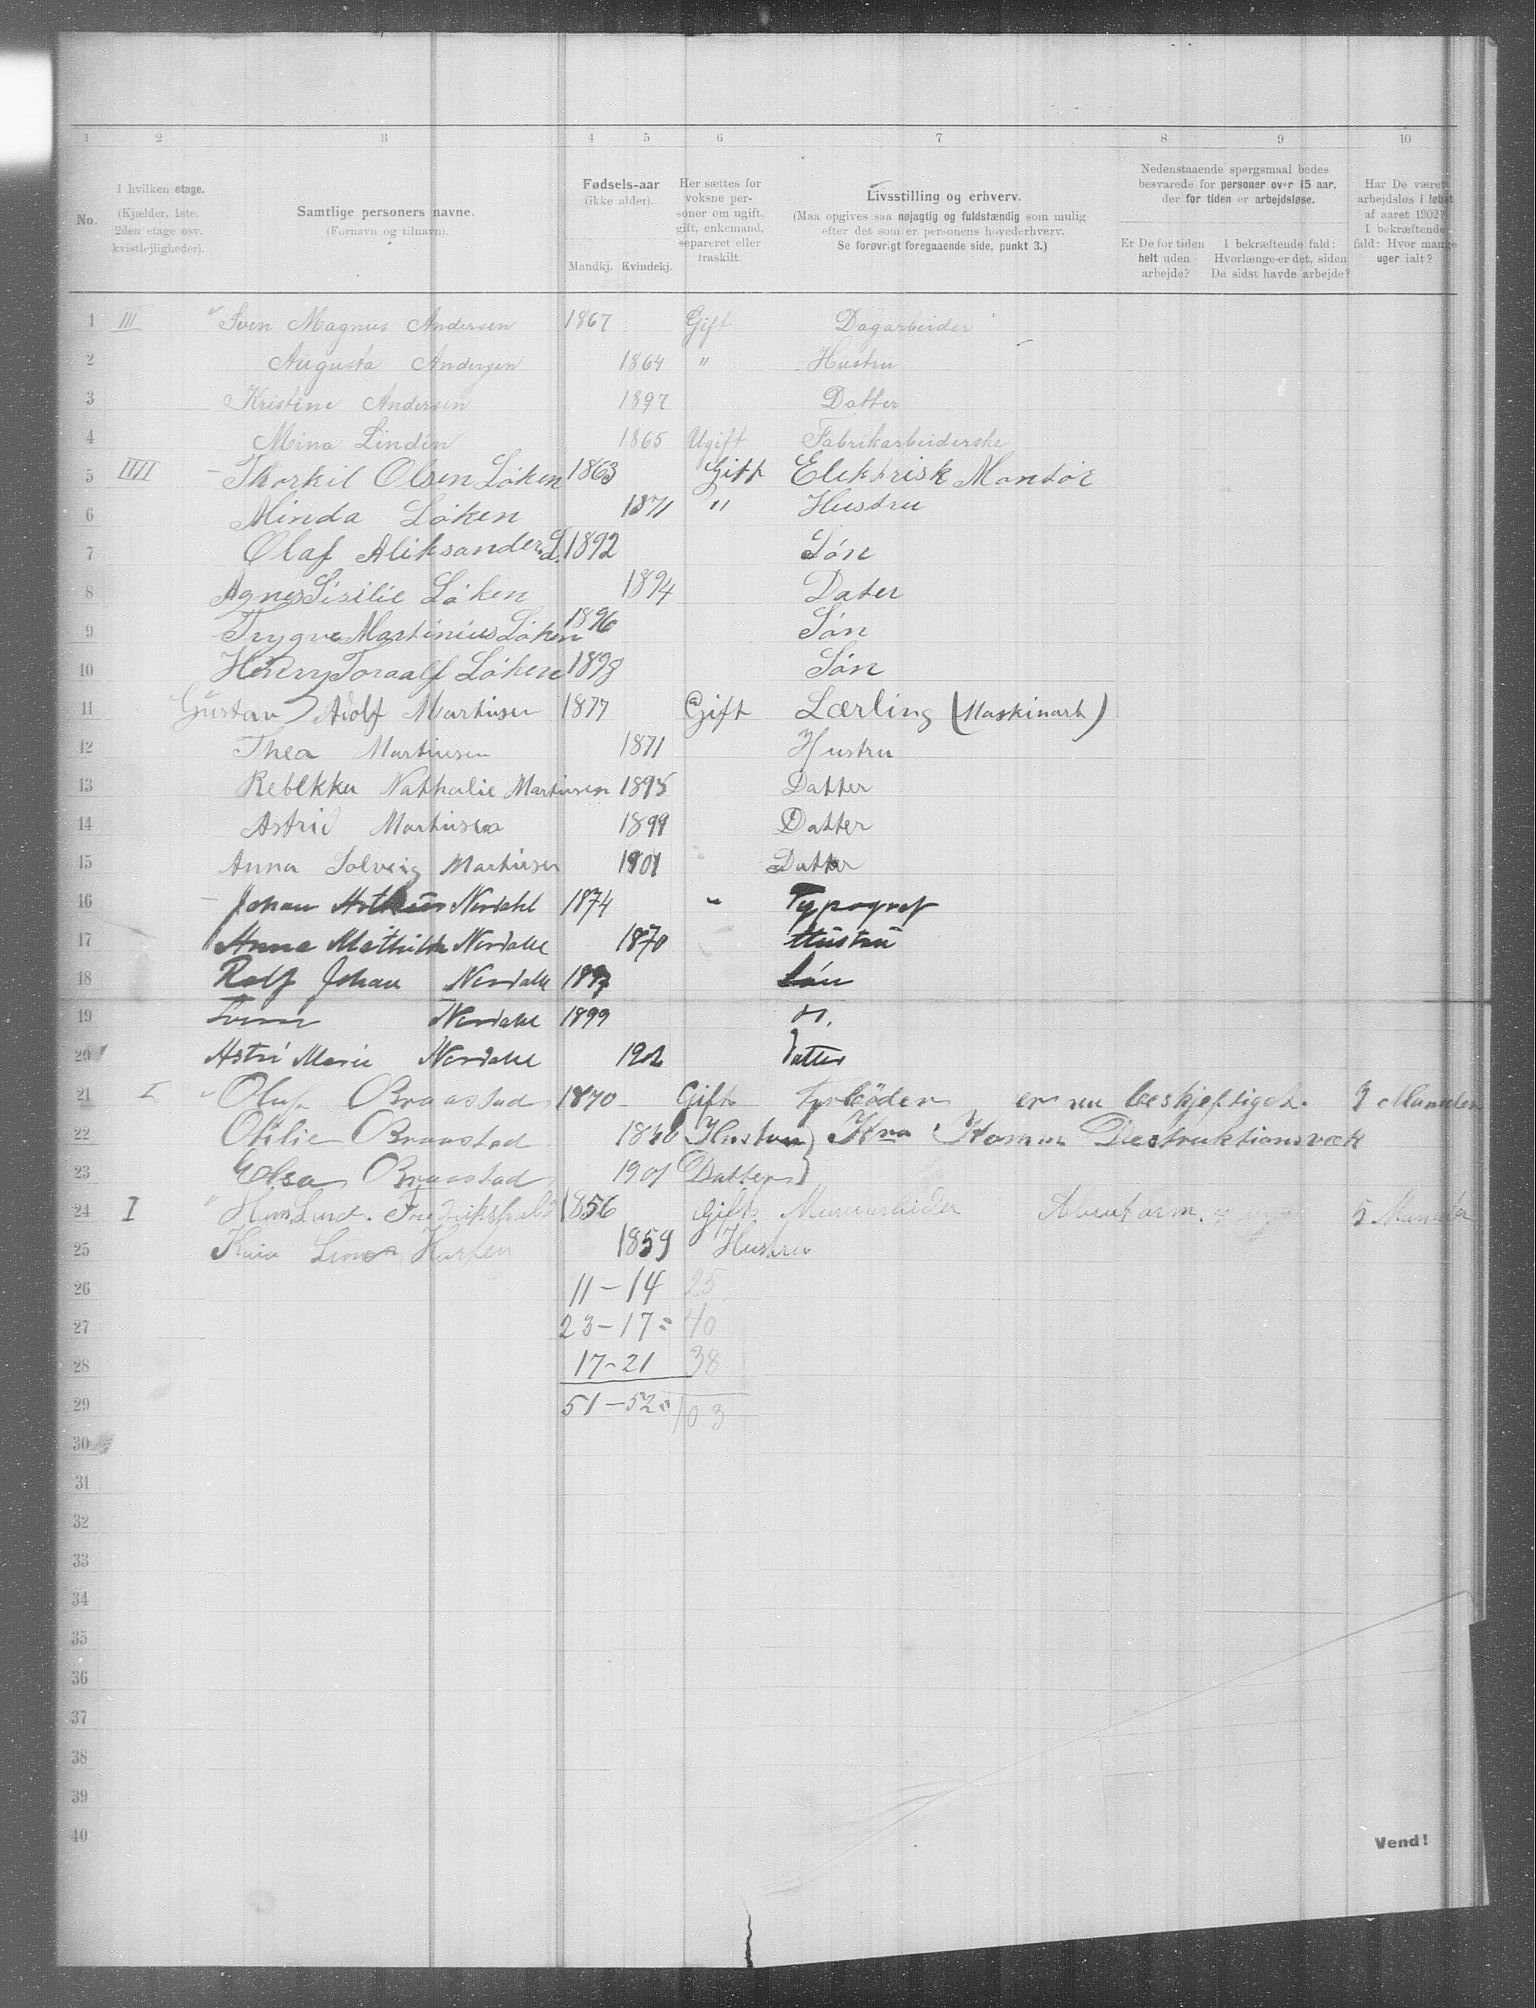 1 2 3 4 5 6 7 8 9 10
No.
I hvilken etage.
(Kjælder, 1ste,
2den etage osv.
kvistlejligheder).
Samtlige personers navne.
(Fornavn og tilnavn).
Fødsels-aar
(ikke alder).
Mandkj. Kvindekj.
Her sættes for
voksne per-
soner om ugift,
gift, enkemand,
separeret eller
fraskilt.
Livsstilling og erhverv.
(Maa opgives saa nøjagtig og fuldstændig som mulig
efter det som er personens hovederhverv.
Se forøvrigt foregaaende side, punkt 3.)
Nedenstaaende spørgsmaal bedes
besvarede for personer over 15 aar,
der for tiden er arbejdsløse.
Er De for tiden
helt uden
arbejde?
I bekræftende fald:
Hvorlænge er det, siden
De sidst havde arbejde?
Har De været
arbejdsløs i løbet
af aaret 1902?
I bekræftende
fald: Hvor mange
uger ialt?
1 III Sven Magnus Andersen 1867 Gift Dagarbeider
2 Augusta Andersen 1864 " Hustru
3 Kristine Andersen 1897 Datter
4 Mina Lindén 1865 Ugift Fabrikarbeiderske
5 IIII Thorkil Olsen Løken 1863 Gift Elektrisk Montør
6 Minda Løken 1871 " Hustru
7 Olaf Aliksander L. 1892 Søn
8 Agnes Sisilie Løken 1894 Dater
9 Trygve Martinius Løken 1896 Søn
10 Henry Toraalf Løken 1898 Søn
11 Gustav Adolf Martinsen 1877 Gift Lærling (Maskinarb)
12 Thea Martinsen 1871 Hustru
13 Rebekka Nathalie Martinsen 1895 Datter
14 Astrid Martinsen 1899 Datter
15 Anna Solveig Martinsen 1901 Datter
16 Johan Nordahl 1874 " Typograf
17 Anna Mathilde Nordahl 1870 Hustru
18 Rolf Johan Nordahl 1897 Søn
19 Nordahl 1899
20 Astri Marie Nordahl 1902 Datter
21 I Oluf Braastad 1870 Gift Fyrböder er nu beskjeftiget. Maaneder
22 Otilie Braastad Hustru } Kra Komm Destruktionsværk
23 Elsa Braastad 1901 Datter }
24 I Fredrikshald 1856 Gift Murarbeider 5 Maaneder
25 1859 Hustru
26 11 - 14 25
27 23 - 17 = 40
28 17 - 21 38
29 51 - 52 = 103
30
31
32
33
34
35
36
37
38
39
40
Vend!